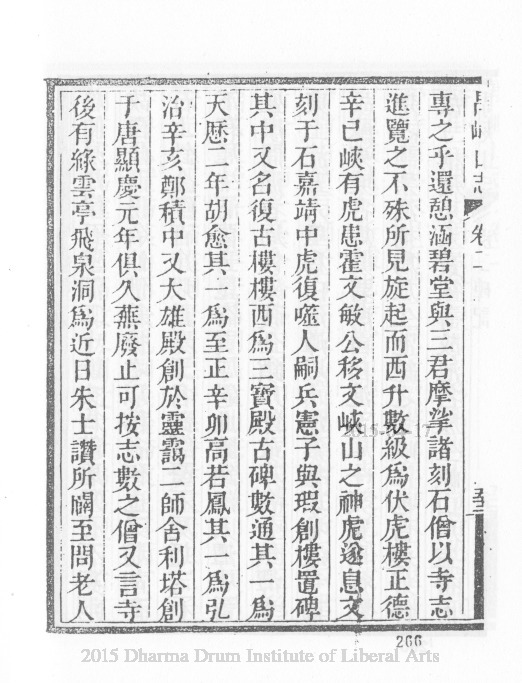 專之乎還憩涵碧堂與三君摩挲諸刻石僧以寺志
進覽之不殊所見旋起而西升數級爲伏虎樓正德
辛巳峽有虎患霍文敏公移文峽山之神虎遂息文
刻于石嘉靖中虎復噬人嗣兵憲子與瑕創樓置碑
其中又名復古樓樓西爲三寶殿古碑數通其一爲
天厯二年胡愈其一爲至正辛卯高若鳳其一爲弘
治辛亥鄭積中又大雄殿創於靈靄二師舍利塔創
于唐顯慶元年俱久蕪廢止可按志數之僧又言寺
後有綠雲亭飛泉洞爲近日朱士讚所闢至問老人
卷二
266
2015 Dharma Drum Institute of Liberal Arts